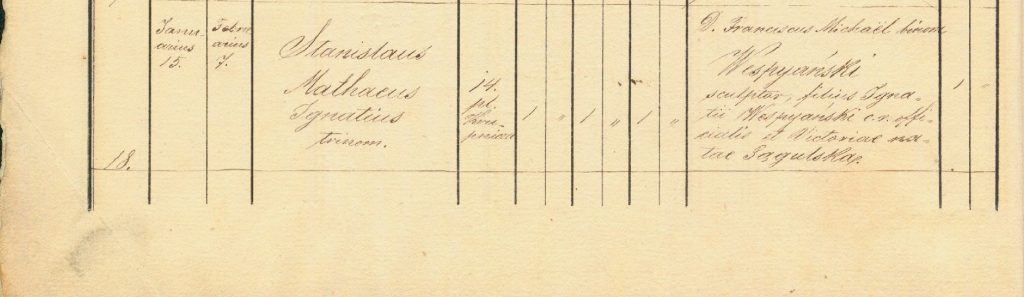 18.
Janu-
arius
15.
Febru
arius
7.
Stanislaus
Mathaeus
Ignatius
trinom.
14.
pl.
Kru-
pnicza
1
"
1
"
1
"
D. Franciscus Michaël binom
Wespyański
sculptor, filius Igna-
tii Wespyański c. r. offi-
cialis et Victoriae na-
tae
1
"